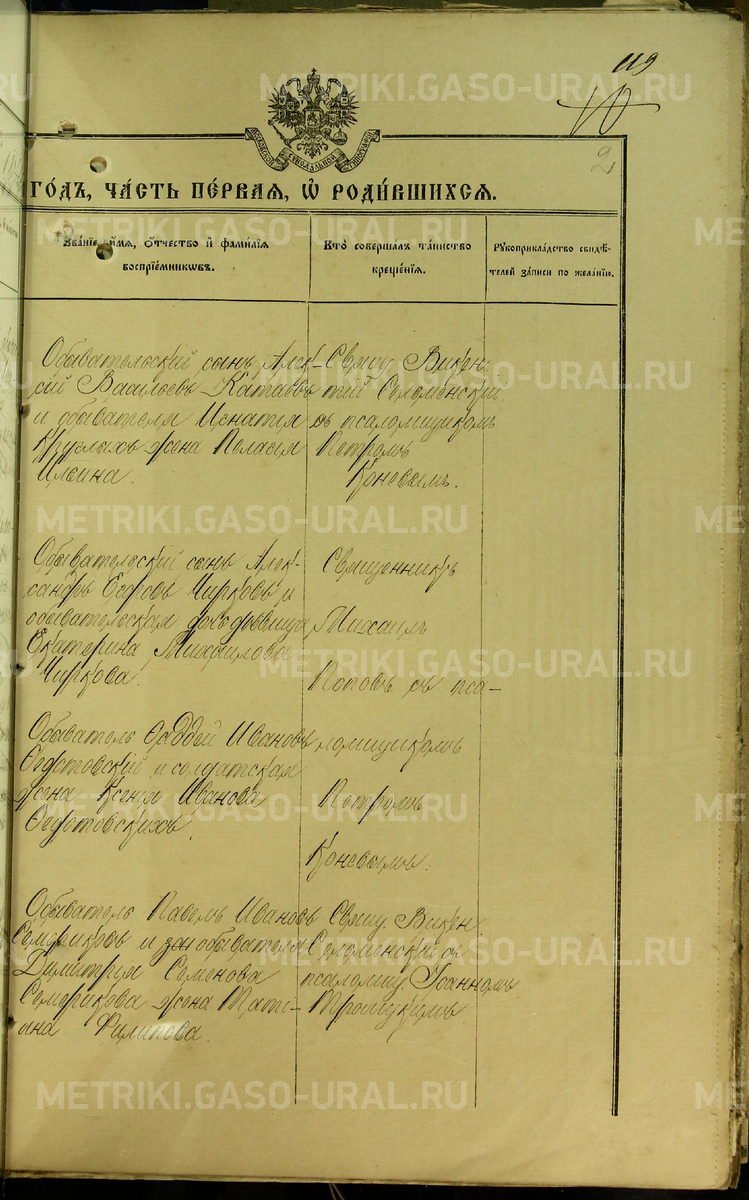 119
10
2
МОСКОВСКОЙ СѴНОДАЛЬНОЙ ТИПОГРАФІИ
ГО́ДЪ, ЧА́СТЬ ПЕ́РВАѦ, Ѡ҆ РОДИ́ВШИХСѦ.
Зва́нїе, и҆́мѧ, ѻ҆́тчество и҆ фами́лїѧ
воспрїе́мникѡвъ.
Кто̀ соверша́лъ та́инство
креще́нїѧ.
Рꙋкоприкла́дство свидѣ́-
телей за́писи по жела́нїю.
Обывательскій сынъ Алек-
сій Васильевъ Катаевъ
и обывателя Игнатія
Круглахъ жена Пелагія
Ильина.
Свящ. Викен-
тій Селоменскій
съ псаломщикомъ
Петромъ
Коневымъ.
Обывательскій сынъ Алек-
сандръ Егоровъ Чирковъ и
обывательская дѣвица
Екатерина Михаилова
Чиркова.
Священникъ
Михаилъ
Поповъ съ пса-
ломщикомъ
Петромъ
Коневымъ.
Обыватель Фаддей Ивановъ
Федотовскій и солдатская
жена Ксенія Иванова
Федотовскихъ
Обыватель Павелъ Ивановъ
Семериковъ и обывателя
Димитрія Семенова
Семерикова жена Тати-
ана Филипова.
Свящ. Викен.
Селоменскій съ
псаломщ. Іоанномъ
Троицкимъ
METRIKI.GASO-URAL.RU